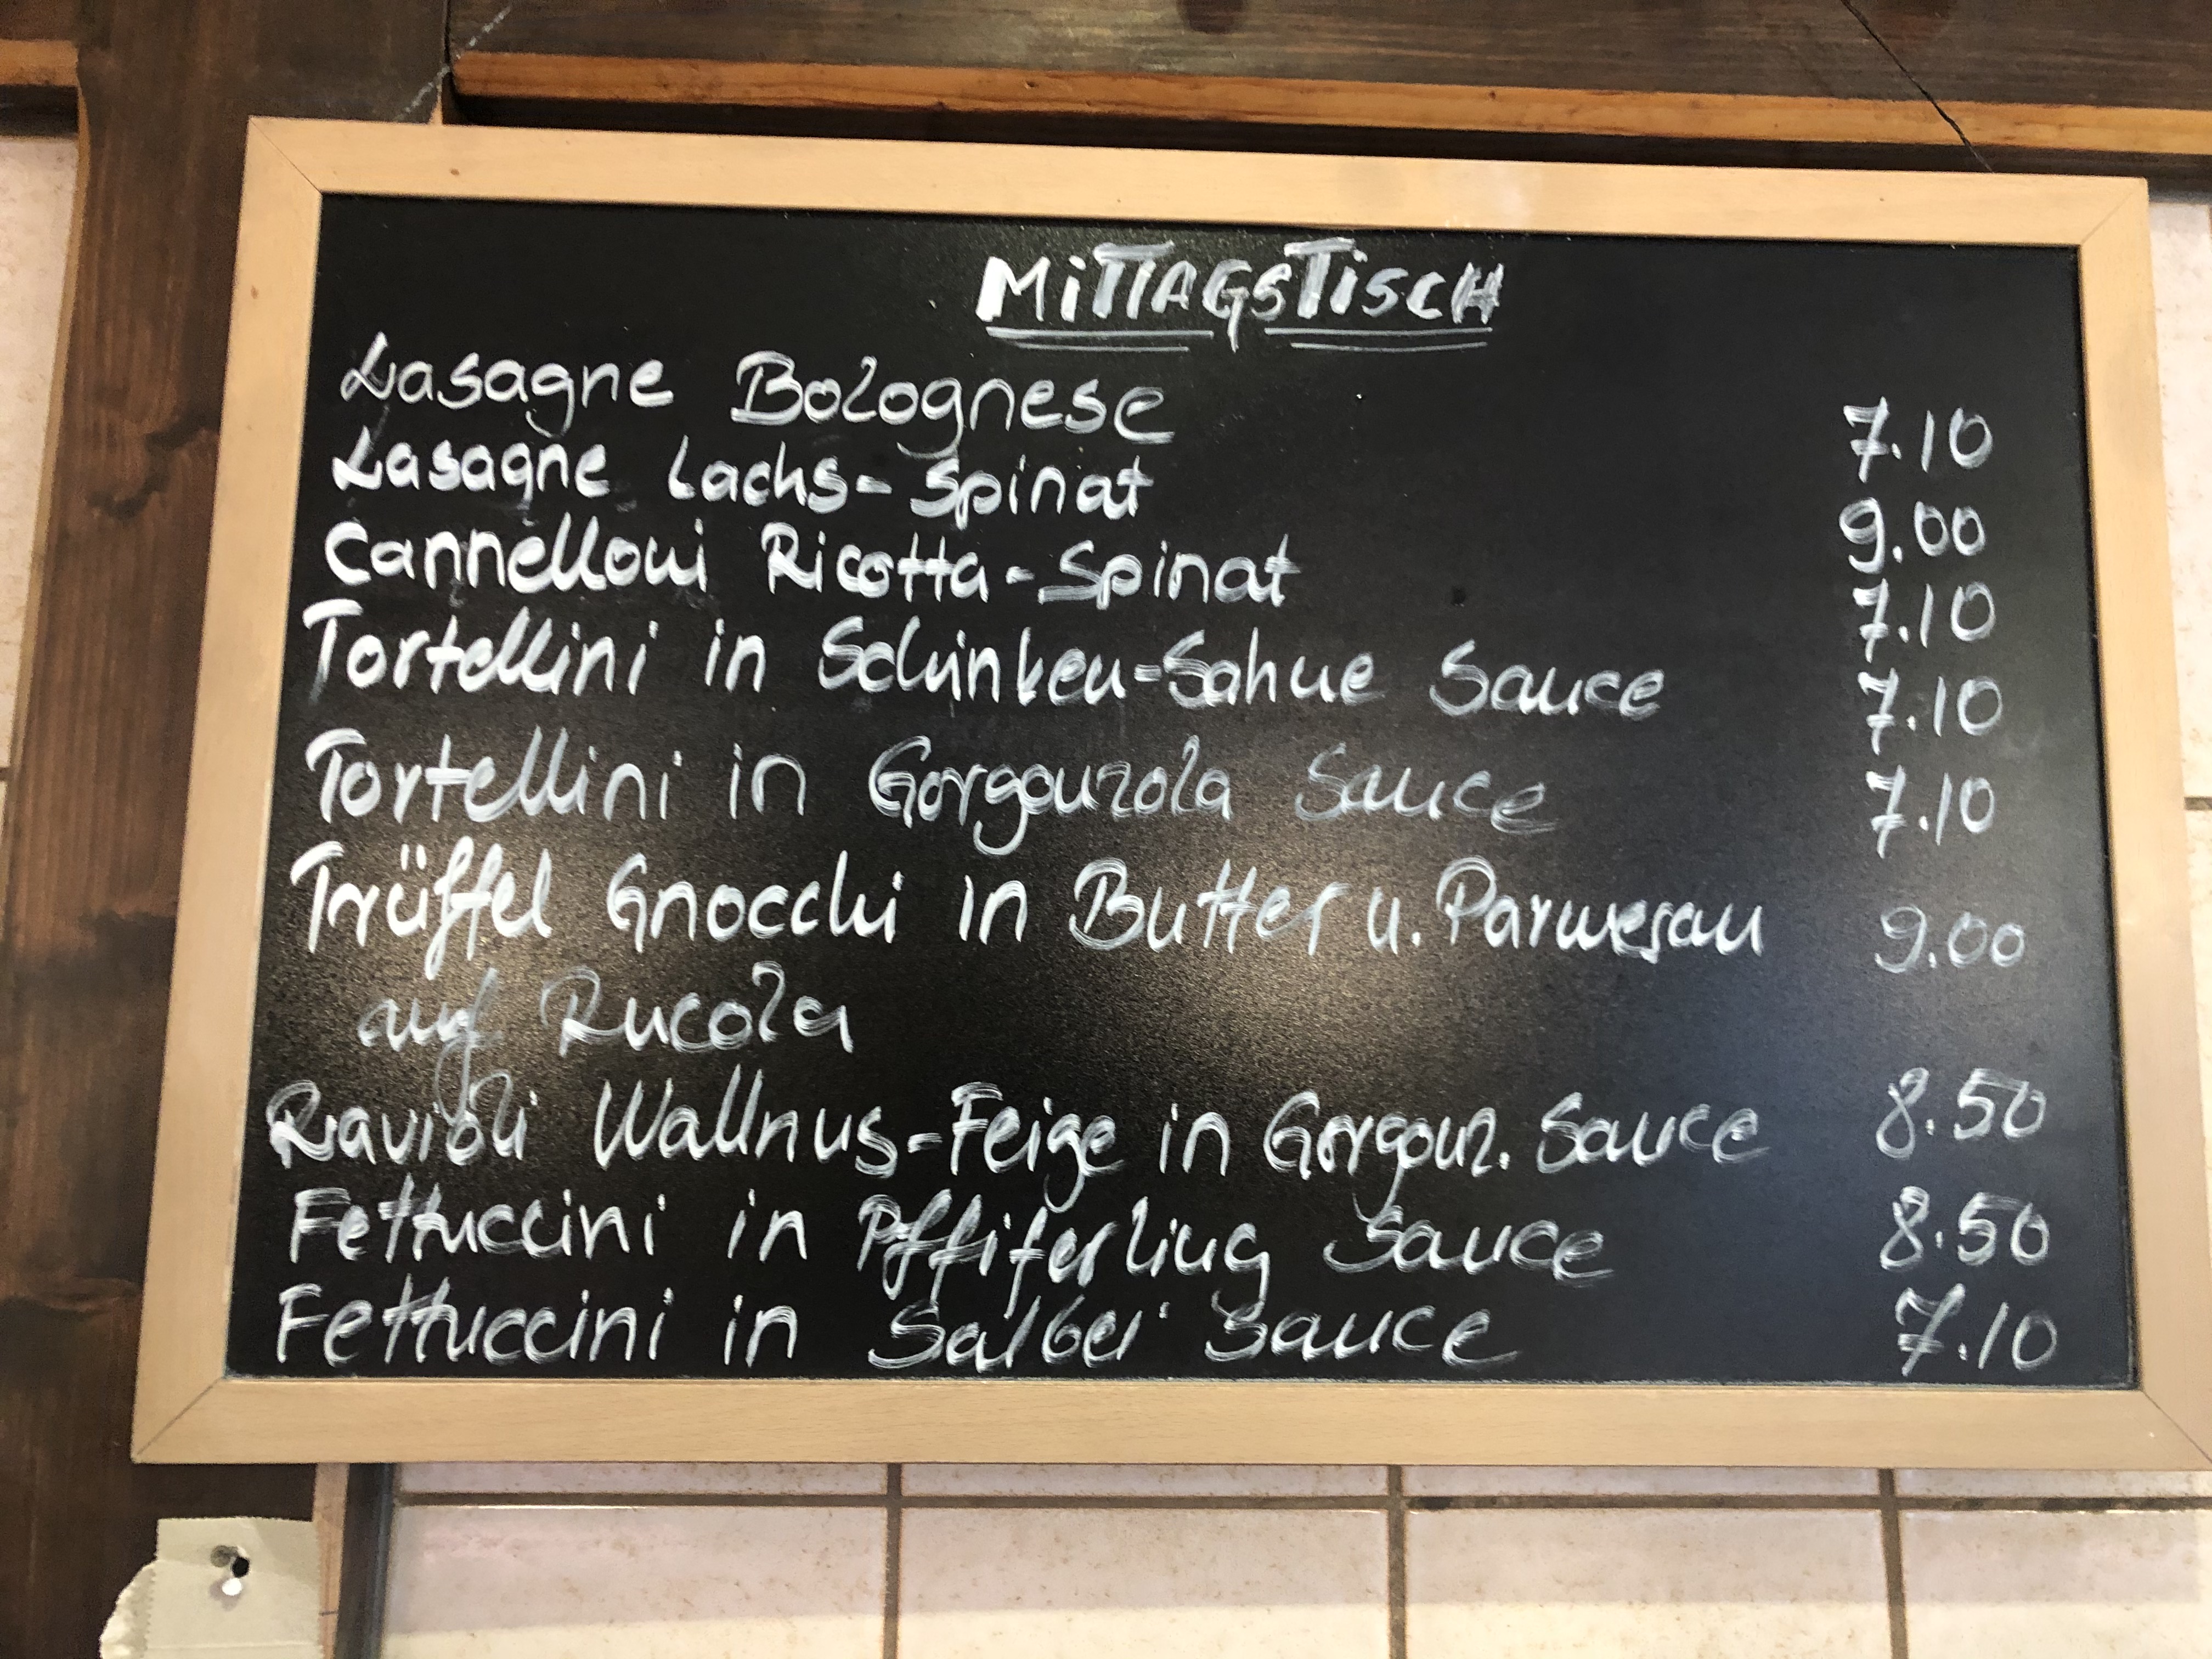 MITTAGSTISCH
Lasagne Bolognese 7.10
Lasagne Lachs-Spinat 9.00
Cannelloni Ricotta-Spinat 7.10
Tortellini in Schinken-Sahne Sauce 7.10
Tortellini in Gorgonzola Sauce 7.10
Trüffel Gnocchi in Butter u. Parmesan 9.00
auf Rucola
Ravioli Wallnus-Feige in Gorgonz. Sauce 8.50
Fettuccini in Pffiferling Sauce 8.50
Fettuccini in Salbei Sauce 7.10